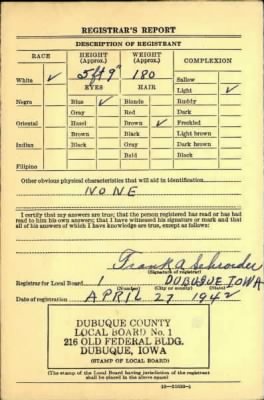 REGISTRAR'S REPORT
DESCRIPTION OF REGISTRANT
RACE HEIGHT (Approx.) WEIGHT (Approx.) COMPLEXION
White ✓ 5ft 9" 180 Sallow
EYES HAIR Light ✓
Negro Blue ✓ Blonde Ruddy
Gray Red Dark
Oriental Hazel Brown ✓ Freckled
Brown Black Light brown
Indian Black Gray Dark brown
Bald Black
Filipino
Other obvious physical characteristics that will aid in identification
NONE
I certify that my answers are true; that the person registered has read or has had
read to him his own answers; that I have witnessed his signature or mark and that
all of his answers of which I have knowledge are true, except as follows:
Frank A Schroeder
(Signature of registrar)
Registrar for Local Board 1 DUBUQUE IOWA
(Number) (City or county) (State)
Date of registration APRIL 27 1942
DUBUQUE COUNTY
LOCAL BOARD No. 1
216 OLD FEDERAL BLDG.
DUBUQUE, IOWA
(STAMP OF LOCAL BOARD)
(The stamp of the Local Board having jurisdiction of the registrant
shall be placed in the above space)